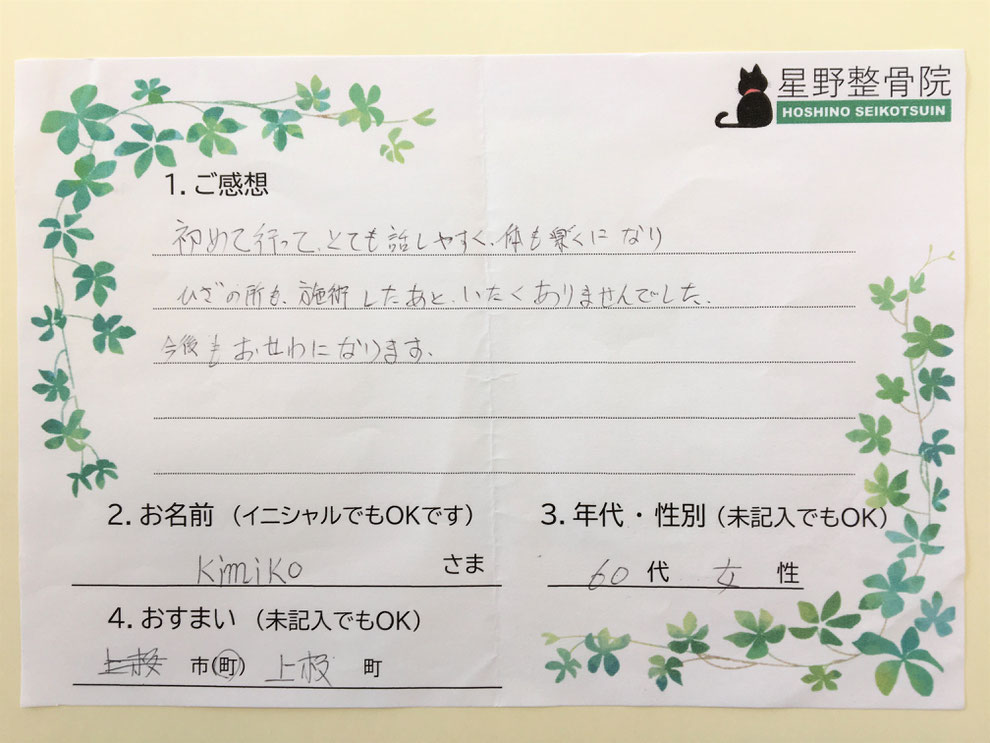 星野整骨院
HOSHINO SEIKOTSUIN
1. ご感想
初めて行って、とても話しやすく、体も楽くになり
ひざの所も、施術したあと、いたくありませんでした。
今後もおせわになります。
2. お名前 (イニシャルでもOKです)
Kimiko さま
3. 年代・性別 (未記入でもOK)
60 代 女 性
4. おすまい (未記入でもOK)
上板 市(町) 上板 町